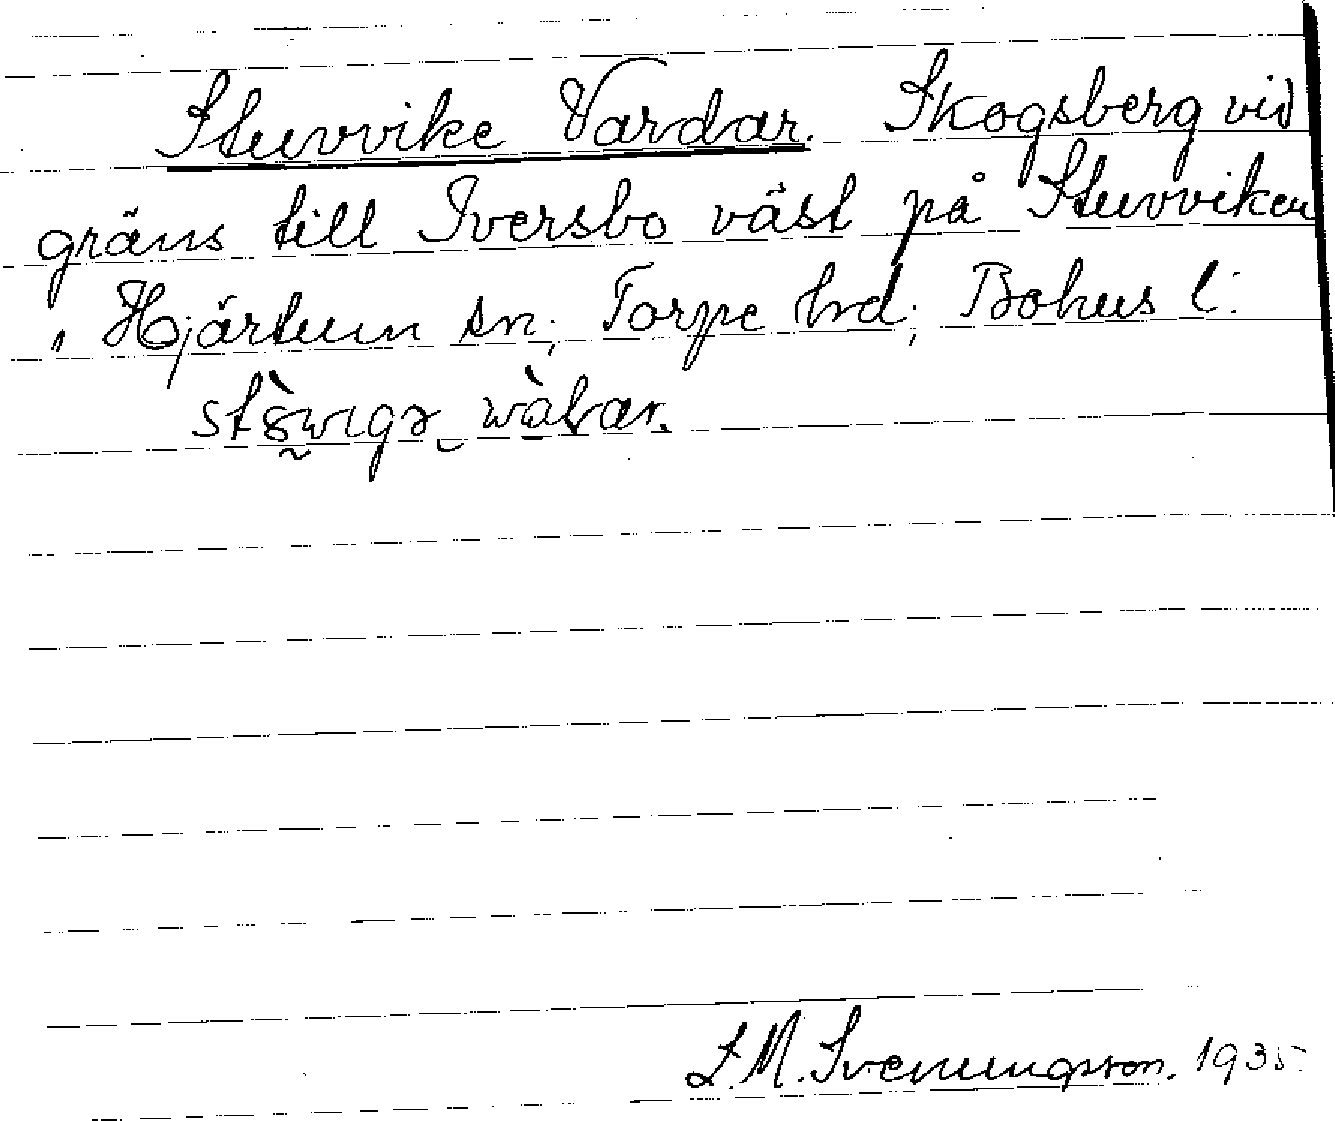 Stuvvike Vardar. Skogsberg vid
gräns till Iversbo väst på Stuvviken
i Hjärtum sn; Torpe hd; Bohus l:
L. M. Svenungsson. 1935